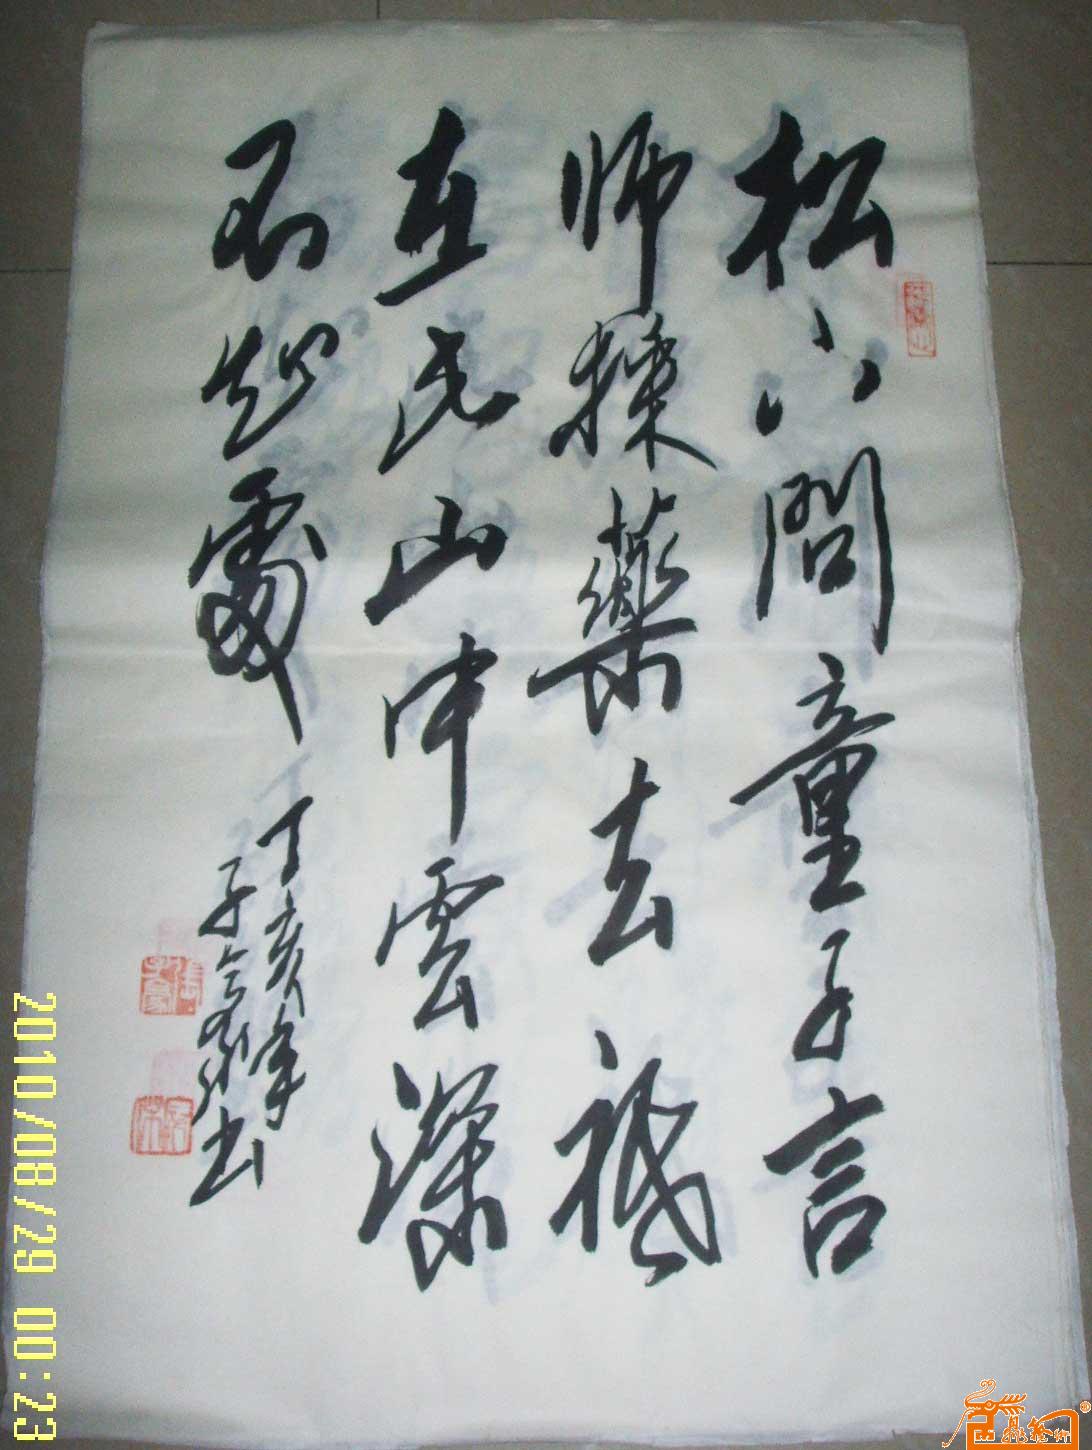 松下問童子言
師採藥去祗
在此山中雲深
不知處
丁亥年
子
书
2010/08/29 00:23